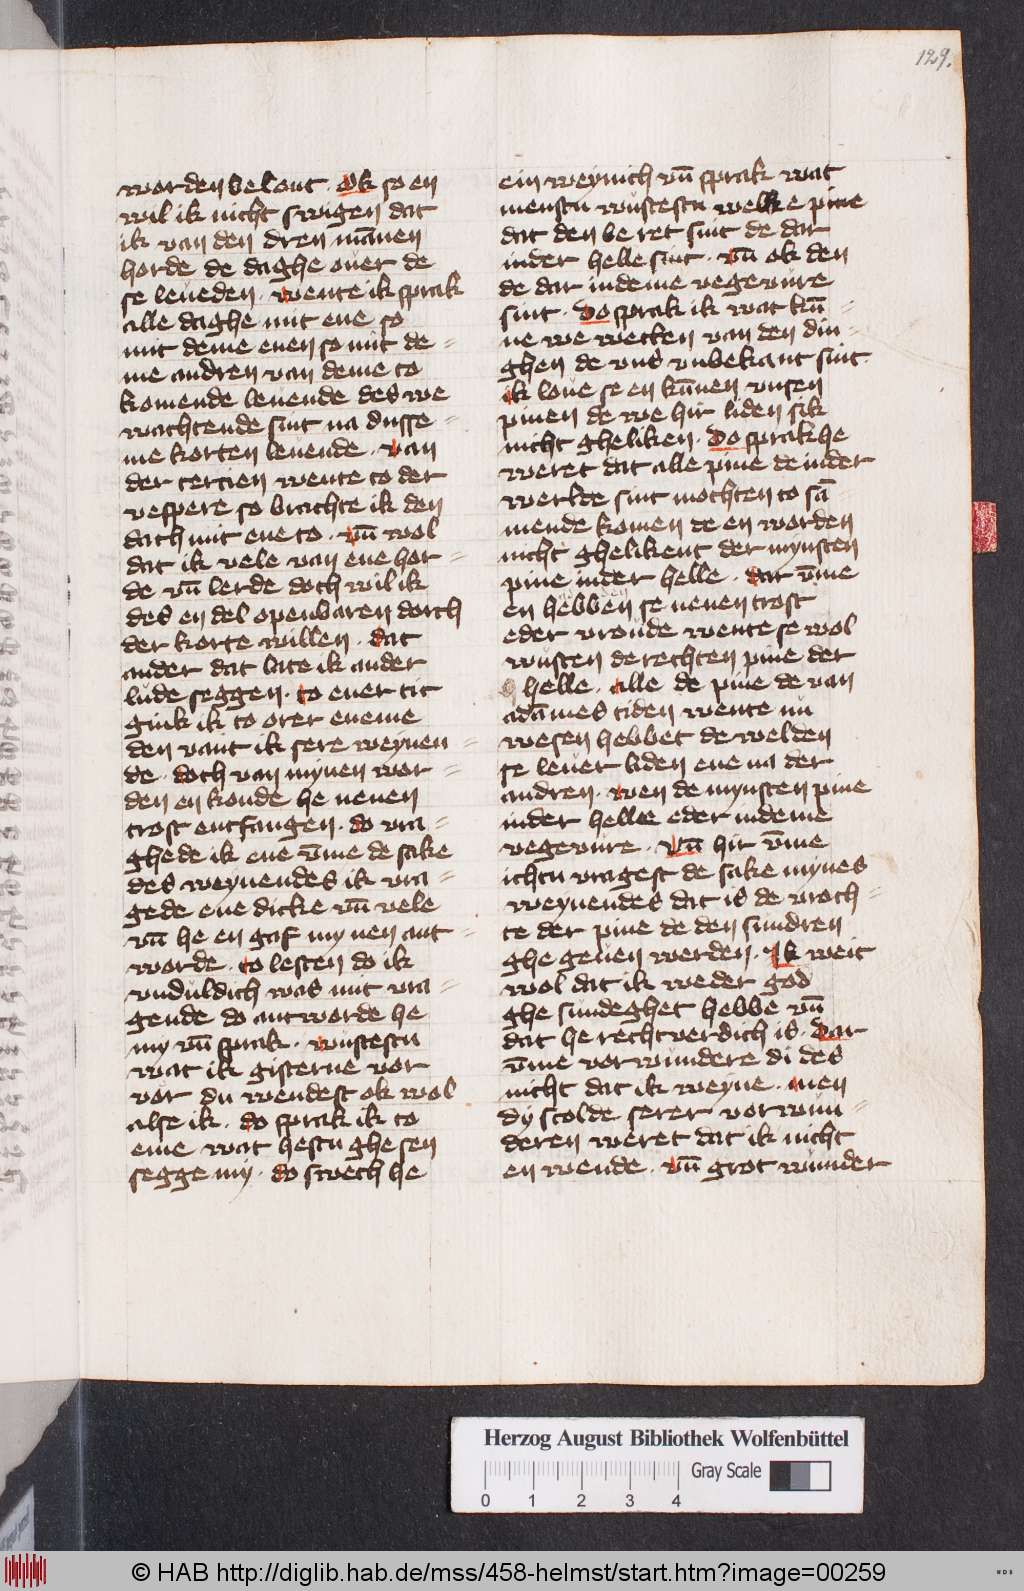 129.
worden belont. Ok so en
wil ik nicht swigen dat
ik van den dren mānen
horde de daghe ouer de
se leueden. wente ik sprak
alle daghe mit ene so
mit deme enen so mit de=
me andren van deme to
komende leuende des we
wachtende sint na dusse=
me korten leuende. van
der tercien wente to der
vespere so brachte ik den
dach mit ene to. vn̄ wol
dat ik vele van ene hor=
de vn̄ lerde doch wil ik
des en del openbaren dorch
der korte willen. dat
ander dat late ik ander
lude seggen. to ener tit
gink ik to orer eneme
den vant ik sere weynen=
de. doch van mynen wor=
den en konde he nenen
trost entfangen. do vra=
ghede ik ene vm̄e de sake
des weynendes ik vra=
gede ene dicke vn̄ vele
vn̄ he en gaf my nen ant=
worde. to lesten do ik
vnduldich was mit vra=
gende do antworde he
my vn̄ sprak. wustestu
wat ik gisterne vor
vor du wendest ok wol
alse ik. do sprak ik to
eme wat hestu ghesen
segge my. do swech he
ein weynich vn̄ sprak wat
menstu wustestu welke pine
dat den be ret sint de dar
inder helle sint. vn̄ ok den
de dar indeme vegevure
sint. Do sprak ik wat kū=
ne we wecken van den din=
ghen de vns vnbekant sint
ik loue se en kūnen vnsen
pinen de we hir liden sik
nicht gheliken. Do sprak he
weret dat alle pine de inder
werlde sint mochten to sā=
mende komen de en worden
nicht ghelikent der mynsten
pine inder helle. dar vm̄e
en hebben se nenen trost
eder vronde wente se wol
wusten de rechten pine der
helle. alle de pine de van
adāmes tiden wente nu
wesen hebbet de welden
se leuer liden ene na der
andren. wen de mynsten pine
inder helle eder indeme
vegevure. Vn̄ hir vm̄e
ichtu vragest de sake mynes
weynendes dat is de vroch=
te der pine de den sundren
ghe geuen werden. Ik weit
wol dat ik weder god
ghe sundeghet hebbe vn̄
dat he rechtverdich is. Dar
vm̄e vorwundere di des
nicht dat ik weyne. men
dy scolde serer vorwun=
deren weret dat ik nicht
en wende. vn̄ grot wunder
Herzog August Bibliothek Wolfenbüttel
Gray Scale
0 1 2 3 4
© HAB http://diglib.hab.de/mss/458-helmst/start.htm?image=00259